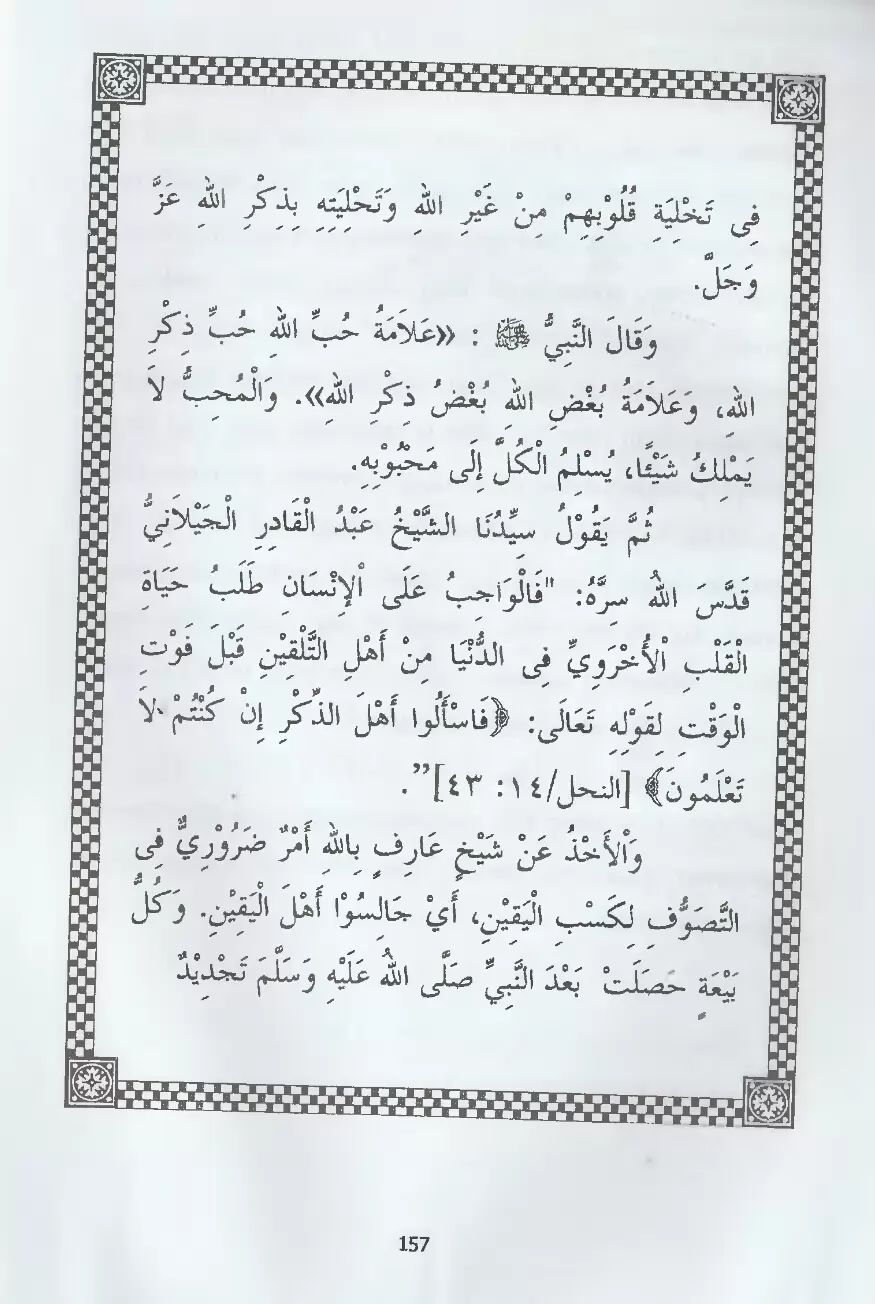 فِى تَخْلِيَةِ قُلُوْبِهِمْ مِنْ غَيْرِ اللهِ وَتَحْلِيَتِهِ بِذِكْرِ اللهِ عَزَّ
وَجَلَّ.
وَقَالَ النَّبِيُّ ﷺ : «عَلَامَةُ حُبِّ اللهِ حُبُّ ذِكْرِ
اللهِ، وَعَلَامَةُ بُغْضِ اللهِ بُغْضُ ذِكْرِ اللهِ». وَالْمُحِبُّ لَا
يَمْلِكُ شَيْئًا، يُسْلِمُ الْكُلَّ إِلَى مَحْبُوْبِهِ.
ثُمَّ يَقُوْلُ سَيِّدُنَا الشَّيْخُ عَبْدُ الْقَادِرِ الْجَيْلَانِيُّ
قَدَّسَ اللهُ سِرَّهُ: "فَالْوَاجِبُ عَلَى الْإِنْسَانِ طَلَبُ حَيَاةِ
الْقَلْبِ الْأُخْرَوِيِّ فِى الدُّنْيَا مِنْ أَهْلِ التَّلْقِيْنِ قَبْلَ فَوْتِ
الْوَقْتِ لِقَوْلِهِ تَعَالَى: ﴿فَاسْأَلُوا أَهْلَ الذِّكْرِ إِنْ كُنْتُمْ لَا
تَعْلَمُونَ﴾ [النحل/١٤: ٤٣]”.
وَالْأَخْذُ عَنْ شَيْخٍ عَارِفٍ بِاللهِ أَمْرٌ ضَرُوْرِيٌّ فِى
التَّصَوُّفِ لِكَسْبِ الْيَقِيْنِ، أَيْ جَالِسُوْا أَهْلَ الْيَقِيْنِ. وَكُلُّ
بَيْعَةٍ حَصَلَتْ بَعْدَ النَّبِيِّ صَلَّى اللهُ عَلَيْهِ وَسَلَّمَ تَجْدِيْدٌ
157